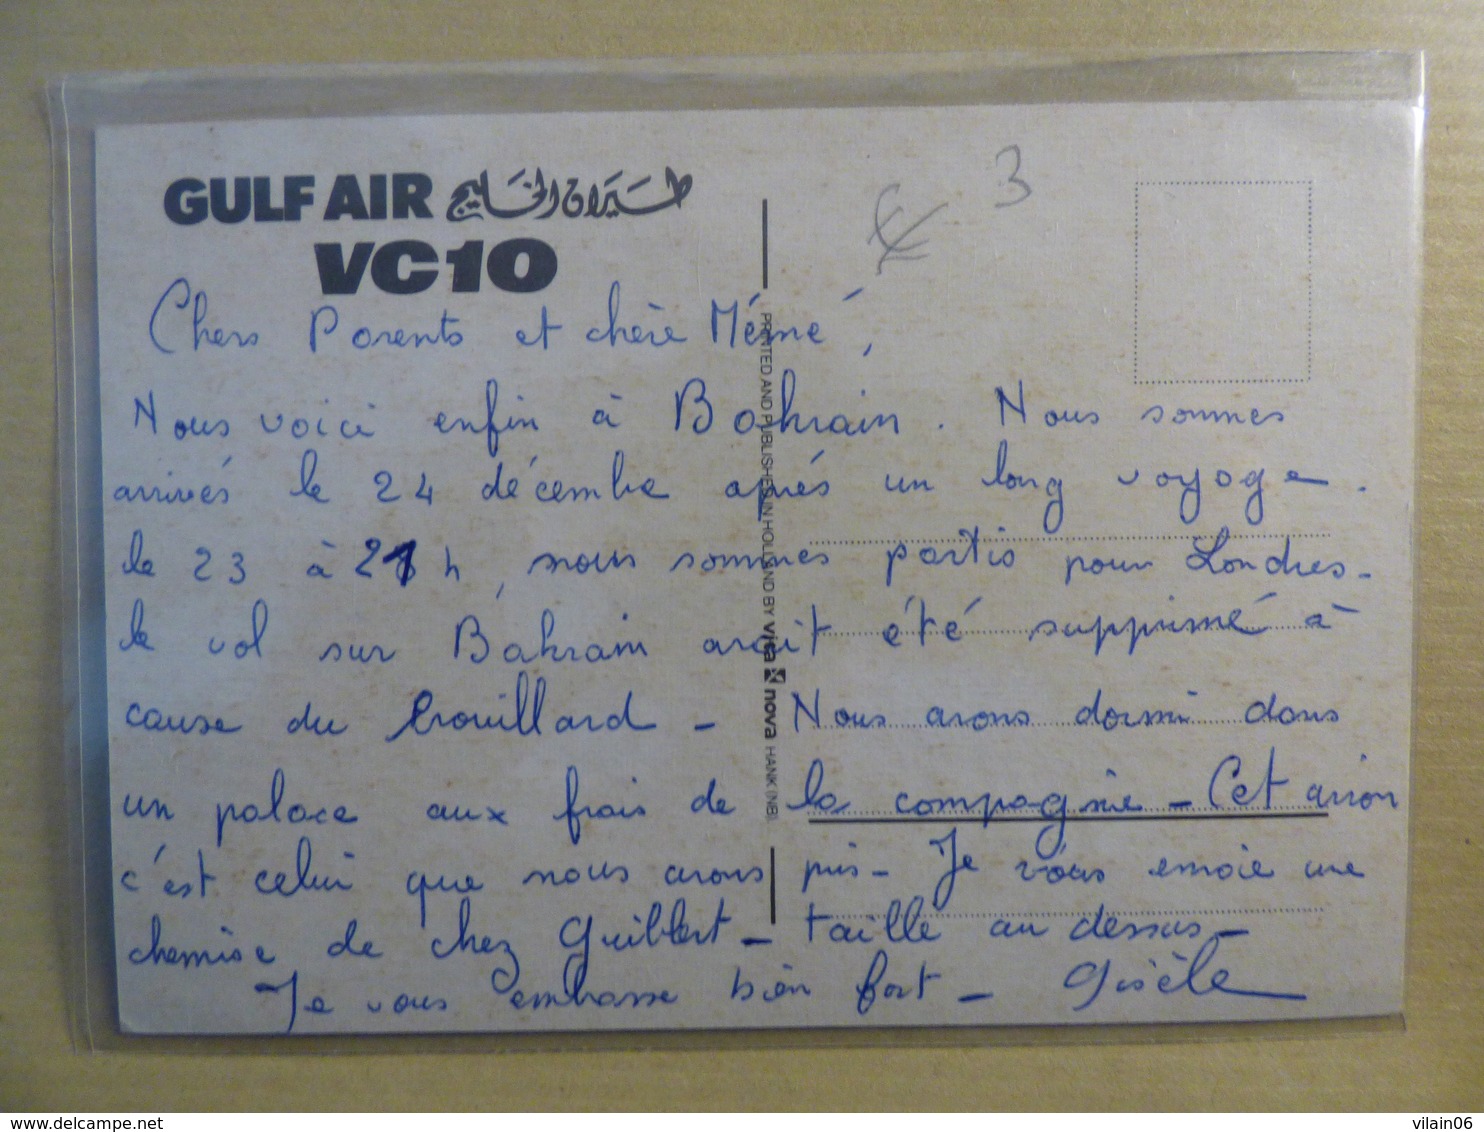 GULF AIR طيران الخليج
VC10
3
Chers Parents et chère Mémé,
Nous voici enfin à Bahrain. Nous sommes
arrivés le 24 décembre après un long voyage.
le 23 à 21 h, nous sommes partis pour Londres-
le vol sur Bahrain avait été supprimé à
cause du brouillard - Nous avons dormi dans
un palace aux frais de la compagnie - Cet avion
c'est celui que nous avons pris - Je vous envoie une
chemise de chez Guibbert - taille au dessus -
Je vous embrasse bien fort - Gisèle
PRINTED AND PUBLISHED IN HOLLAND BY vita nova HANK (NB)
delcampe.net
vilain06